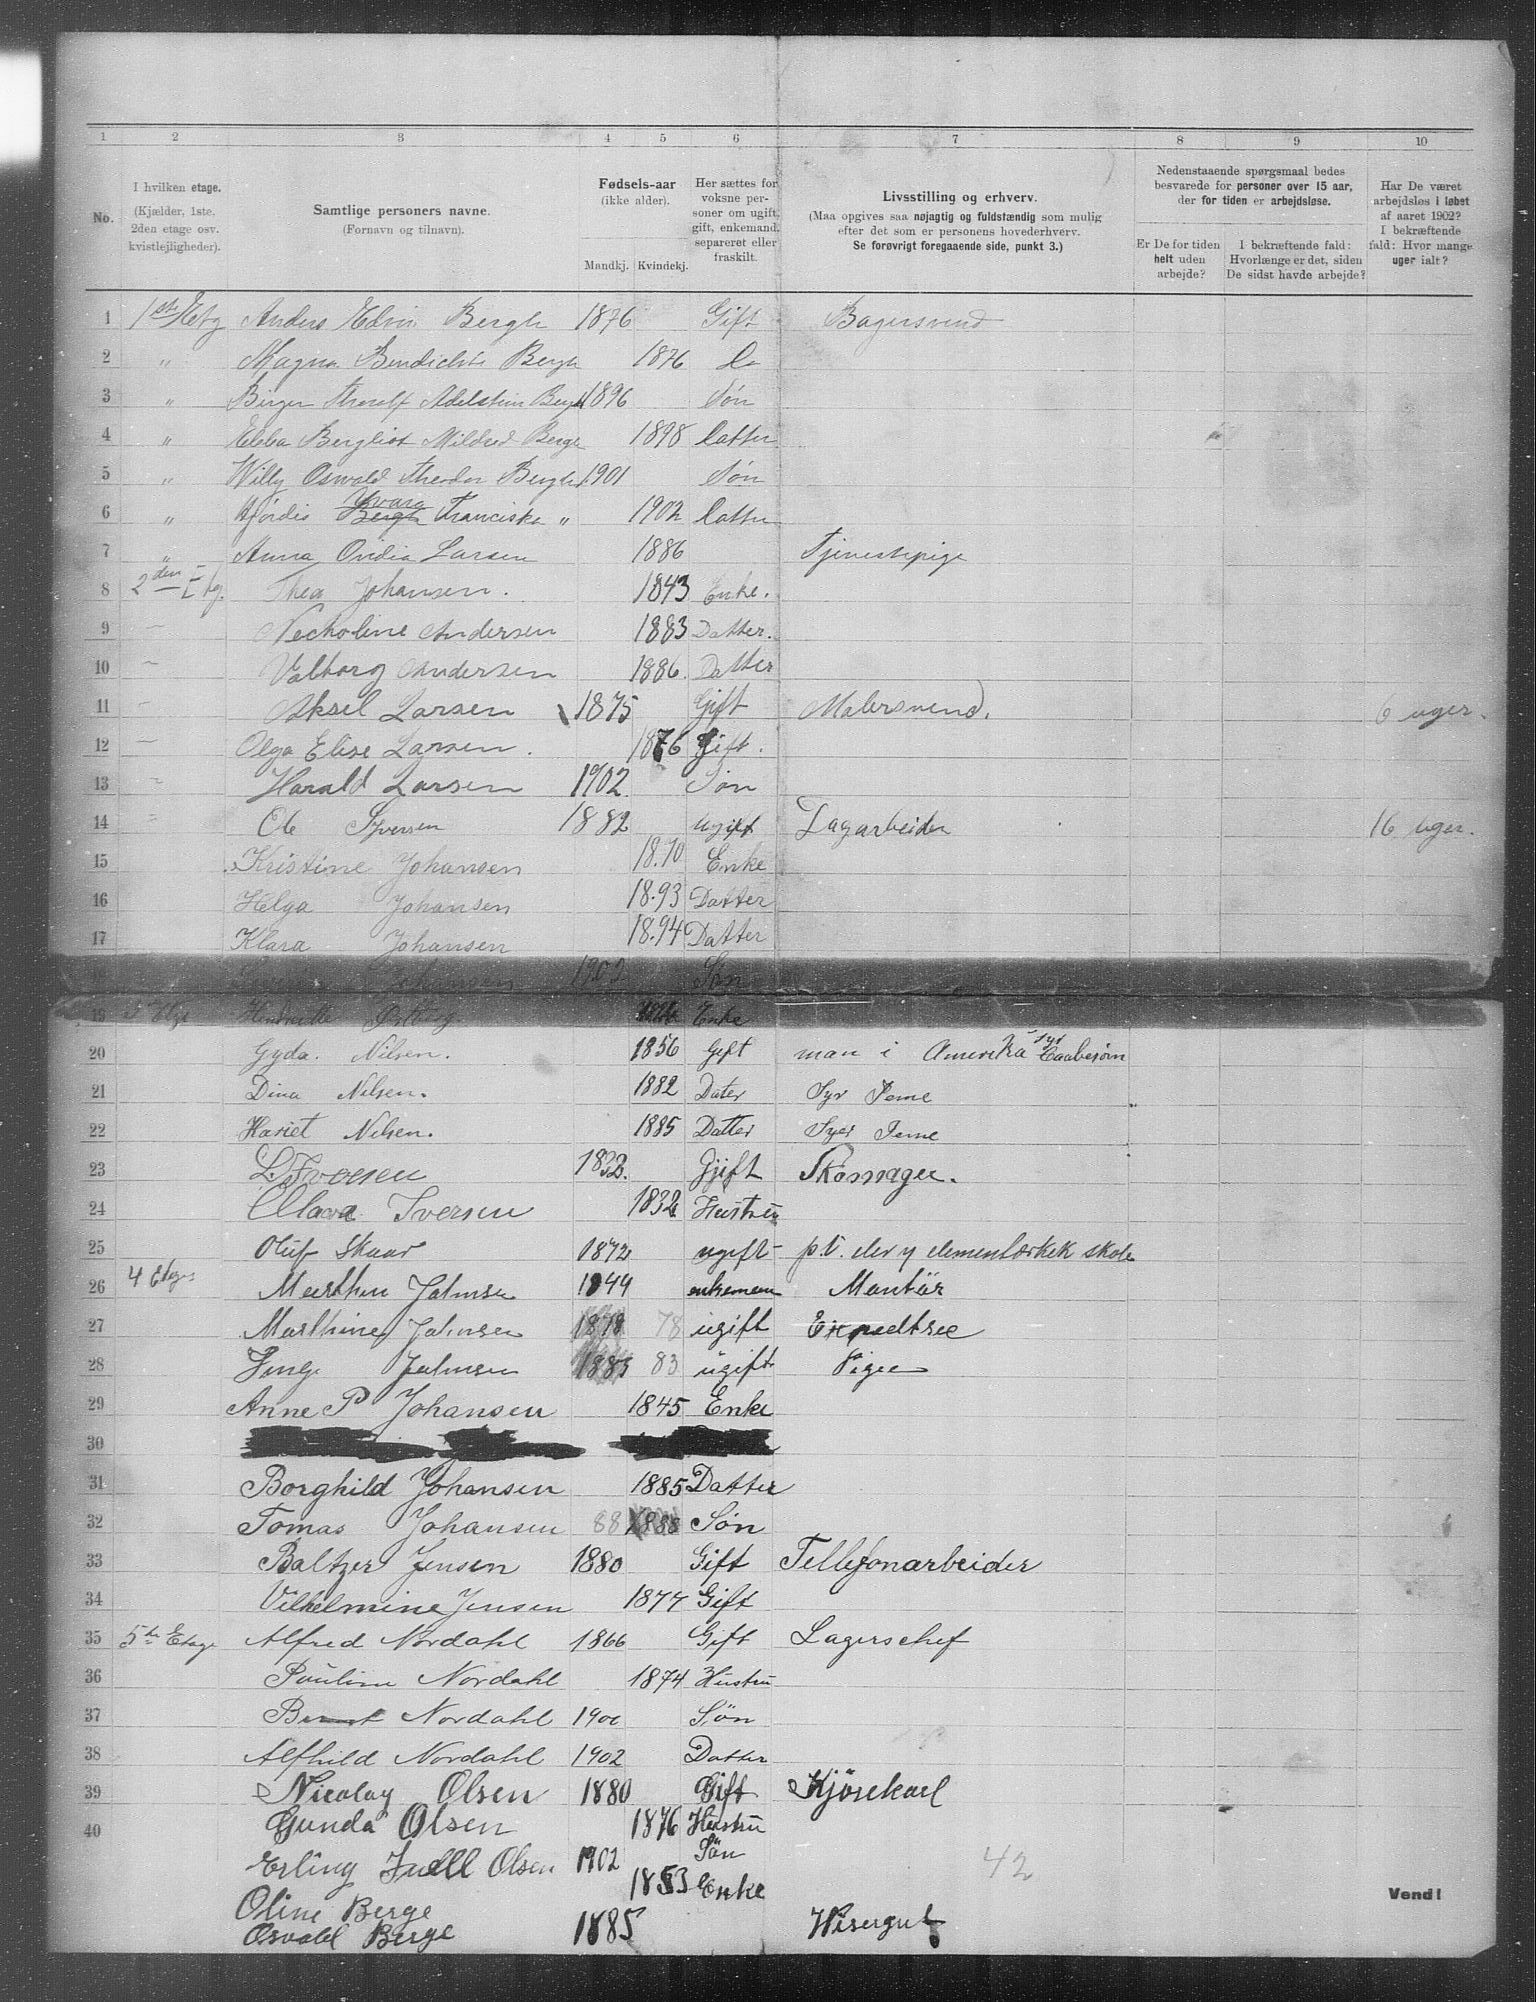 1 2 3 4 5 6 7 8 9 10
No.
I hvilken etage.
(Kjælder, 1ste.
2den etage osv.
kvistlejligheder).
Samtlige personers navne.
(Fornavn og tilnavn).
Fødsels-aar
(ikke alder).
Mandkj. Kvindekj.
Her sættes for
voksne per-
soner om ugift,
gift, enkemand,
separeret eller
fraskilt.
Livsstilling og erhverv.
(Maa opgives saa nøjagtig og fuldstændig som mulig
efter det som er personens hovederhverv.
Se forøvrigt foregaaende side, punkt 3.)
Nedenstaaende spørgsmaal bedes
besvarede for personer over 15 aar,
der for tiden er arbejdsløse.
Er De for tiden
helt uden
arbejde?
I bekræftende fald:
Hvorlænge er det, siden
De sidst havde arbejde?
Har De været
arbejdsløs i løbet
af aaret 1902?
I bekræftende
fald: Hvor mange
uger ialt?
1 1ste Etg Anders Edvin Bergh 1876 Gift Bagersvend
2 " Magna Bendickte Bergh 1876 Do
3 " Birger Thoralf Adelstein Bergh 1896 Søn
4 " Ebba Bergliot Mildred Bergh 1898 Datter
5 " Willy Oswald Theodor Bergh 1901 Søn
6 " Hjördis Yvara Franciska " 1902 Datter
7 " Anna Ovidia Larsen 1886 Tjenestepige
8 2den Etg. Thea Johansen. 1843 Enke.
9 Necholine Andersen 1883 Datter.
10 Valborg Andersen 1886. Datter
11 Aksel Larsen 1875 Gift Malersvend. 6 uger.
12 Olga Elise Larsen. 1876 Gift.
13 Harald Larsen 1902. Søn
14 Ole Syversen 1882 ugift Lagarbeider 16 uger.
15 Kristine Johansen 18.70 Enke
16 Helga Johansen 18.93 Datter
17 Klara Johansen 18.94 Datter
18 Johansen 1902 Søn
19 3 Etge Henriette Østberg Enke
20 Gyda. Nilsen. 1856 Gift man i Amerika syr
21 Dina Nilsen. 1882 Dater Syr Jeme
22 Hariet Nilsen. 1885 Datter Syer Jeme
23 L. Iversen 1832. Gjift Skomager.
24 Clara Iversen 1832 Hustru
25 Oluf Skaar 1872 ugift p.t. elev y elementærtek skole
26 4 Etage Marthin Johnsen 1844 enkeman Montör
27 Marthine Johnsen 1878 78 ugift Expedtree
28 Johnsen 1883 83 ugift Pige
29 Anne P Johansen 1845 Enke
30
31 Borghild Johansen 1885 Datter
32 Tomas Johansen 88 1888 Søn
33 Baltzer Jensen 1880 Gift Tellefonarbeider
34 Vilhelmine Jensen 1877 Gift
35 5te Etage Alfred Nordahl 1866 Gift Lagerschef
36 Pauline Nordahl 1874 Hustru
37 Bernt Nordahl 1900 Søn
38 Alfhild Nordahl 1902 Datter
39 Nicolay Olsen 1880 Gift Kjörekarl
40 Gunda Olsen 1876 Hustru
Erling Juell Olsen 1902 Søn
42
Oline Berge 1853 Enke
Osvald Berge 1885 Visergut
Vend!